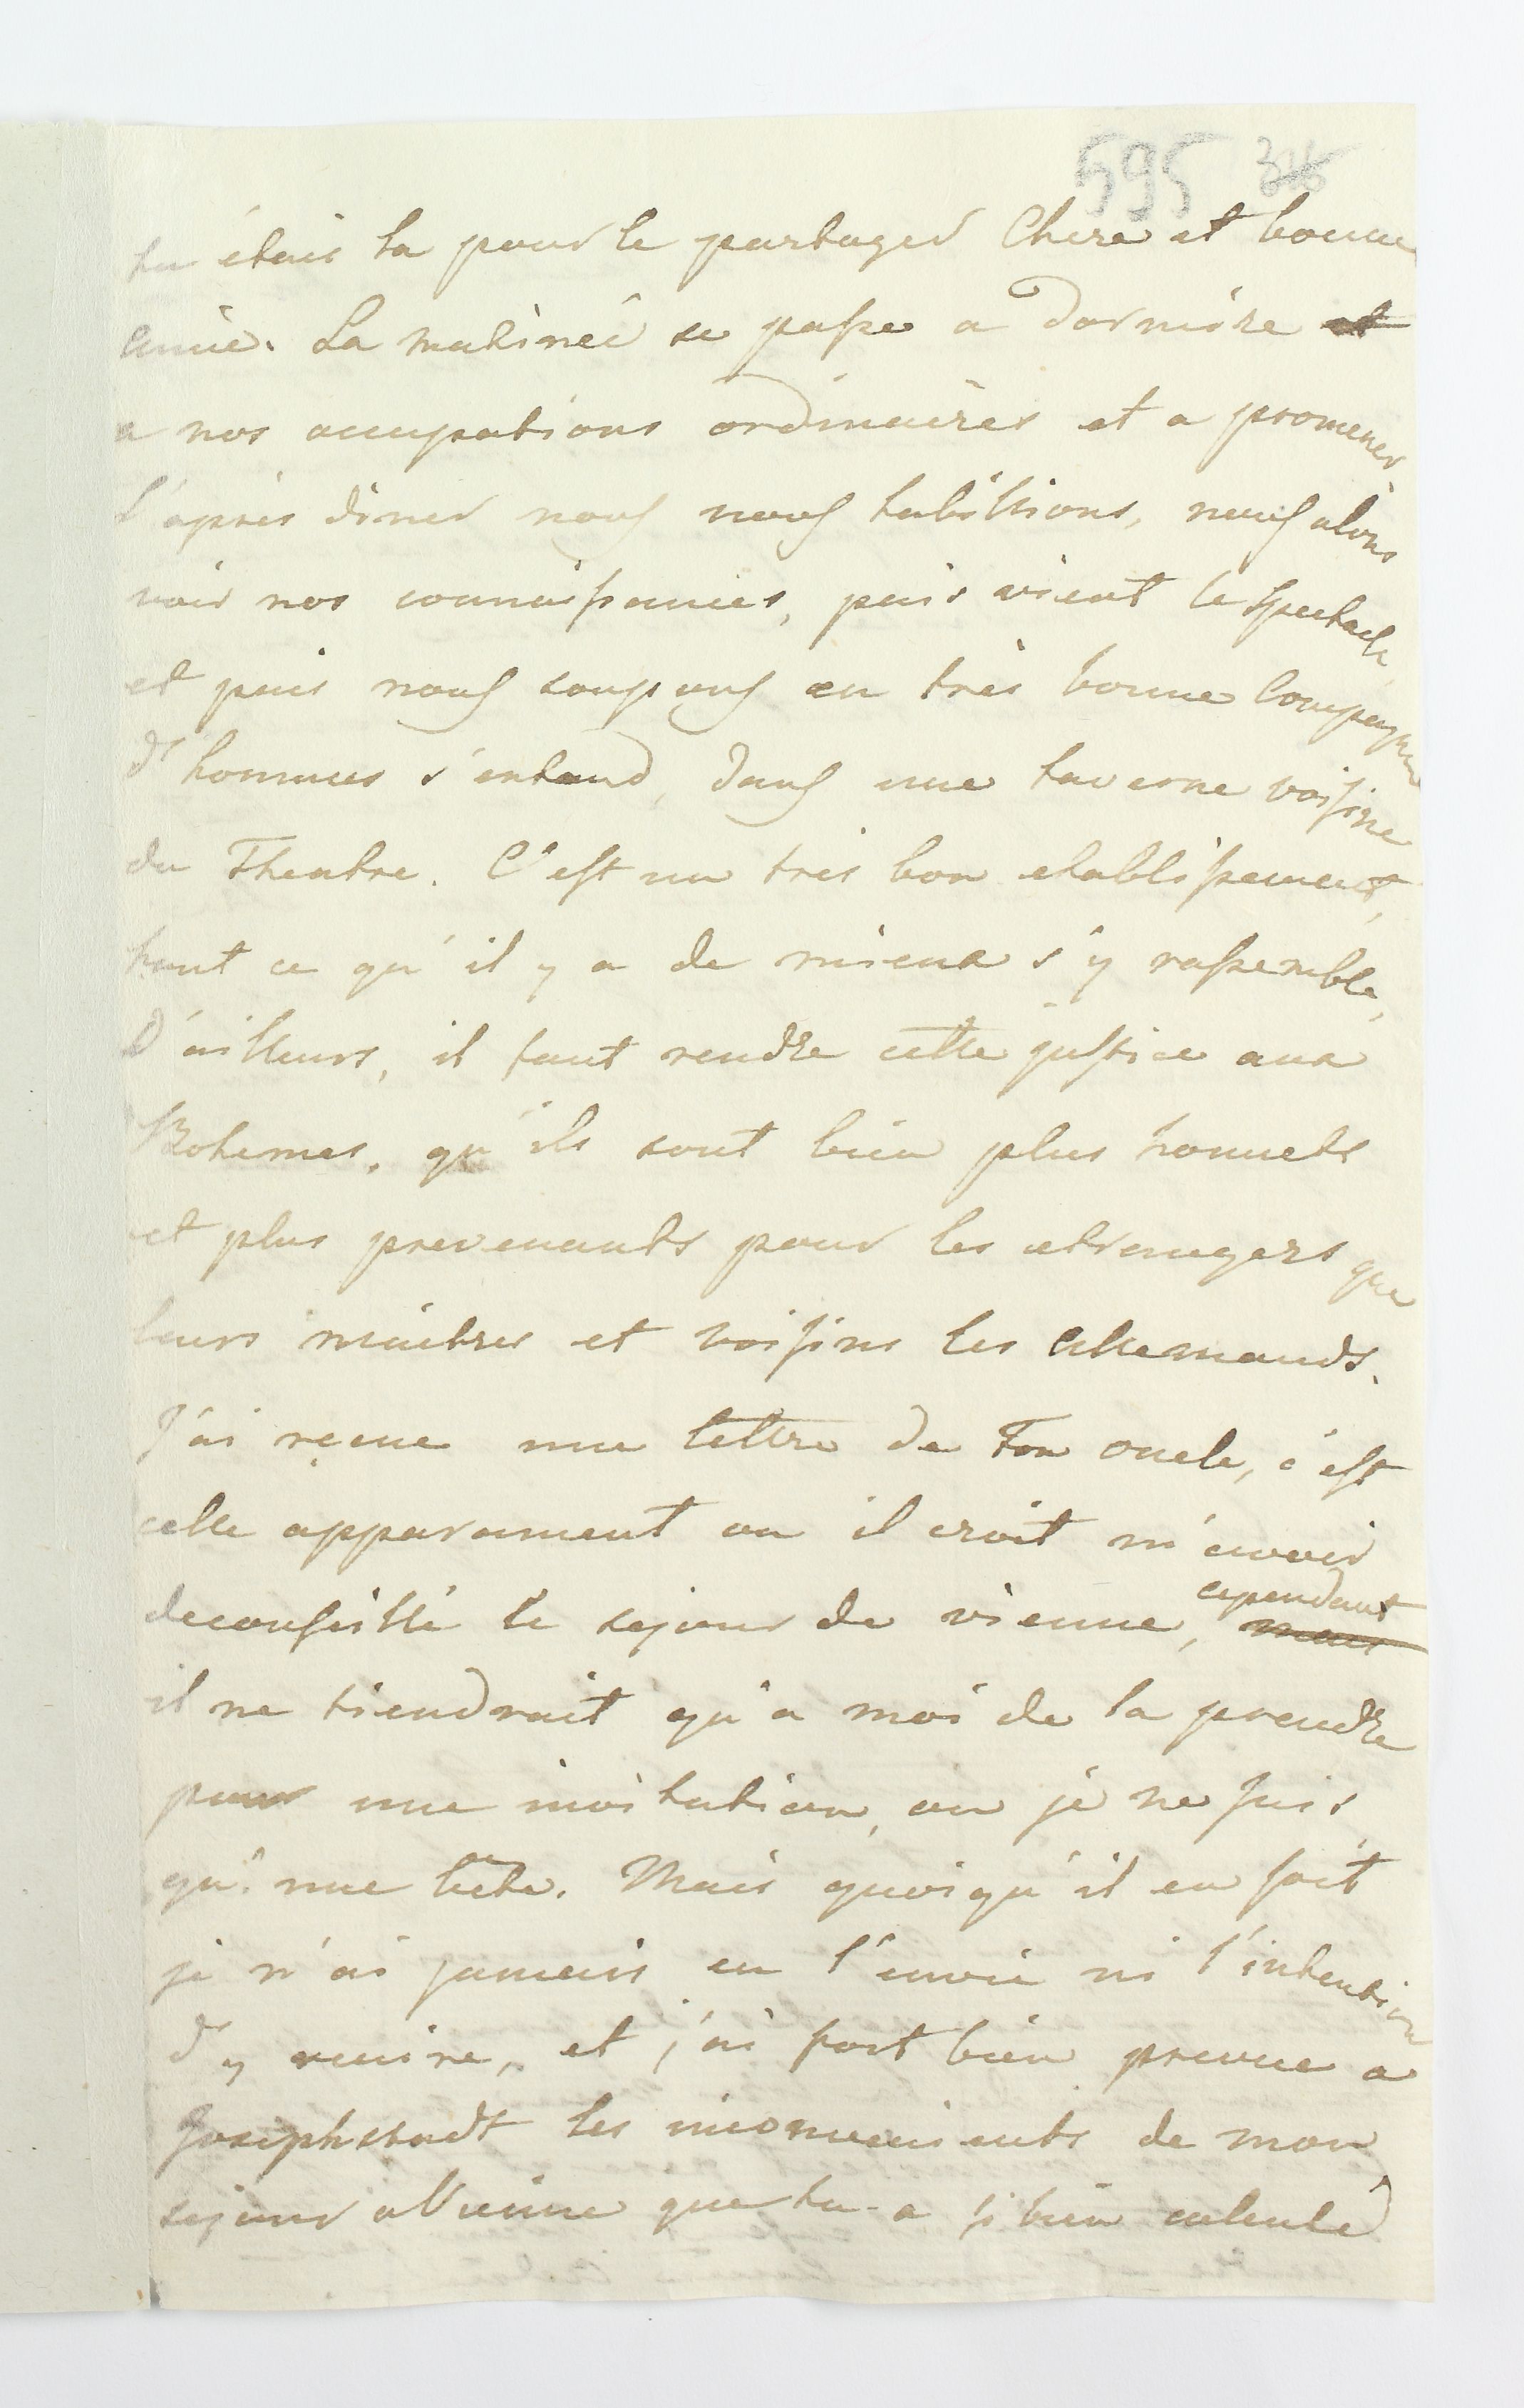 595 346
tu étais la pour le partager Chere et bonne
amie. La matineé se passe a dormire et
a nos occupations ordinaires et a promener,
l'après diner nous nous habillions, nous alons
voir nos connaissances, puis vient le spectacle
et puis nous soupons en très bonne Compagnie
d'hommes s'entend, dans une taverne voisine
du Theatre. C'est un tres bon etablissement,
tout ce qu'il y a de mieux s'y rassemble,
D'ailleurs, il faut rendre cette justice aux
Bohemes, qu'ils sont bien plus honnets
et plus prevenants pour les etrangers que
leurs maitres et voisins les Allemands.
J'ai reçue une lettre de Ton oncle, c'est
celle apparament ou il croit m'avoir
deconseillé le sejour de vienne, cependant
mais
il ne tiendrait qu'a moi de la prendre
pour une invitation, ou je ne suis
qu'une bête. Mais quoiqu'il en soit
je n'ai jamais eu l'envie ni l'intention
d'y venire, et j'ai fort bien prevue a
Josephstadt les inconvenients de mon
sejour a Vienne que tu a si bien calculé